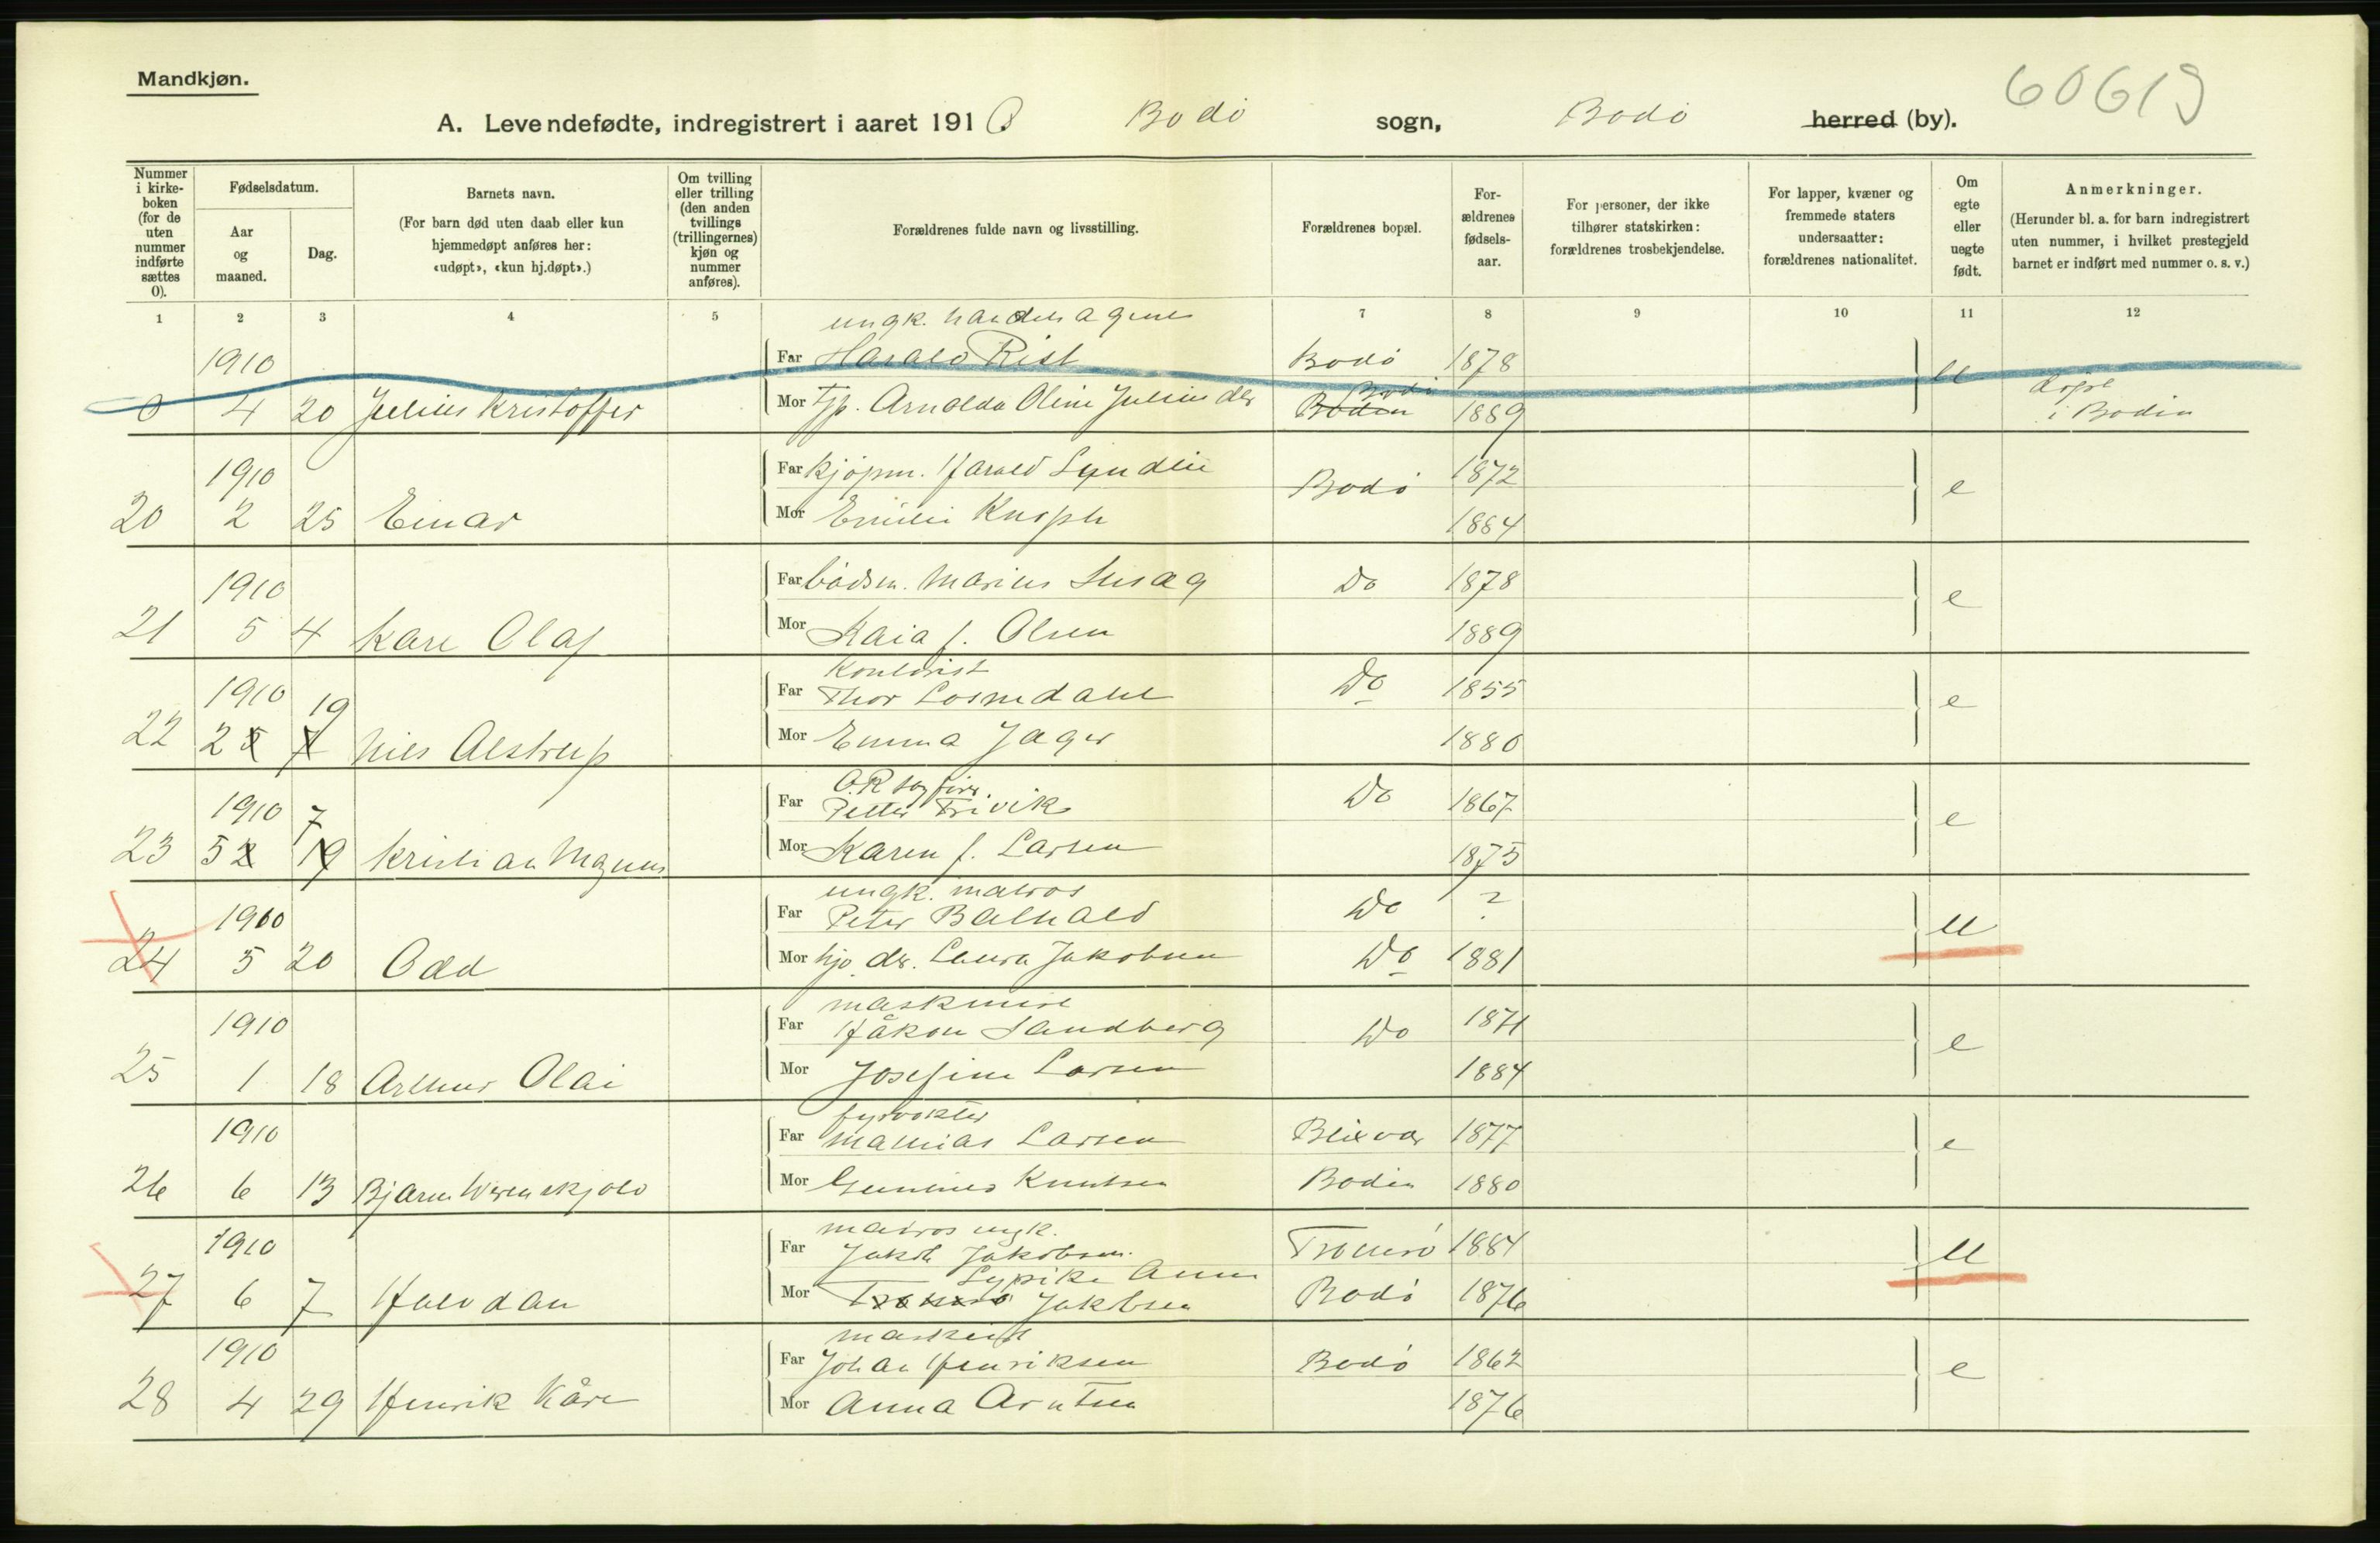 Mandkjøn.
60619
A. Levendefødte, indregistrert i aaret 1910 Bodø sogn, Bodø herred (by).
Nummer i kirkeboken (for de uten nummer indførte sættes 0).
Fødselsdatum.
Aar og maaned.
Dag.
Barnets navn.
(For barn død uten daab eller kun hjemmedøpt anføres her: «udøpt», «kun hj.døpt».)
Om tvilling eller trilling (den anden tvillings (trillingernes) kjøn og nummer anføres).
Forældrenes fulde navn og livsstilling.
Forældrenes bopæl.
Forældrenes fødselsaar.
For personer, der ikke tilhører statskirken: forældrenes trosbekjendelse.
For lapper, kvæner og fremmede staters undersaatter: forældrenes nationalitet.
Om egte eller uegte født.
Anmerkninger.
(Herunder bl. a. for barn indregistrert uten nummer, i hvilket prestegjeld barnet er indført med nummer o. s. v.)
1 2 3 4 5 7 8 9 10 11 12
ungk. handelsagent
1910 Far Harald Rist Bodø 1878 u
0 4 20 Julius Kristoffer Mor Tjp. Arnolda Oline Juliusdtr Bodin Bodø 1889 døpt i Bodin
1910 Far Kjøpm. Harald Lyndlie Bodø 1872 e
20 2 25 Einar Mor Emilie Knoph 1884
1910 Far bådsm. Marius Lusæg Do 1878 e
21 5 4 Kåre Olaf Mor Kaia f. Olsen 1889
Kontorist
1910 19 Far Thor Losnedahl Do 1855 e
22 2 5 7 Nils Alstrup Mor Emma Jæger 1880
O.R sagfører
1910 7 Far Petter Trivik Do 1867 e
23 5 2 19 Kristian Magnus Mor Karen f. Larsen 1875
ungk. matros
1910 Far Peter Balhald Do ? u
24 5 20 Odd Mor hjp. dtr. Laura Jakobsen Do 1881
maskinist
1910 Far Håkon Sandberg Do 1871 e
25 1 18 Arthur Olai Mor Josefine Larsen 1884
fyrvokter
1910 Far Mathias Larsen Blixvær 1877 e
26 6 13 Bjarne Werenskjold Mor Knutsen Bodin 1880
matros ungk.
1910 Far Jakob Jakobsen Tromsø 1884 u
27 6 7 Halvdan Mor Tromsø Anna Jakobsen Bodø 1876
maskinist
1910 Far Johan Henriksen Bodø 1862 e
28 4 29 Henrik Kåre Mor Anna Arntsen 1876